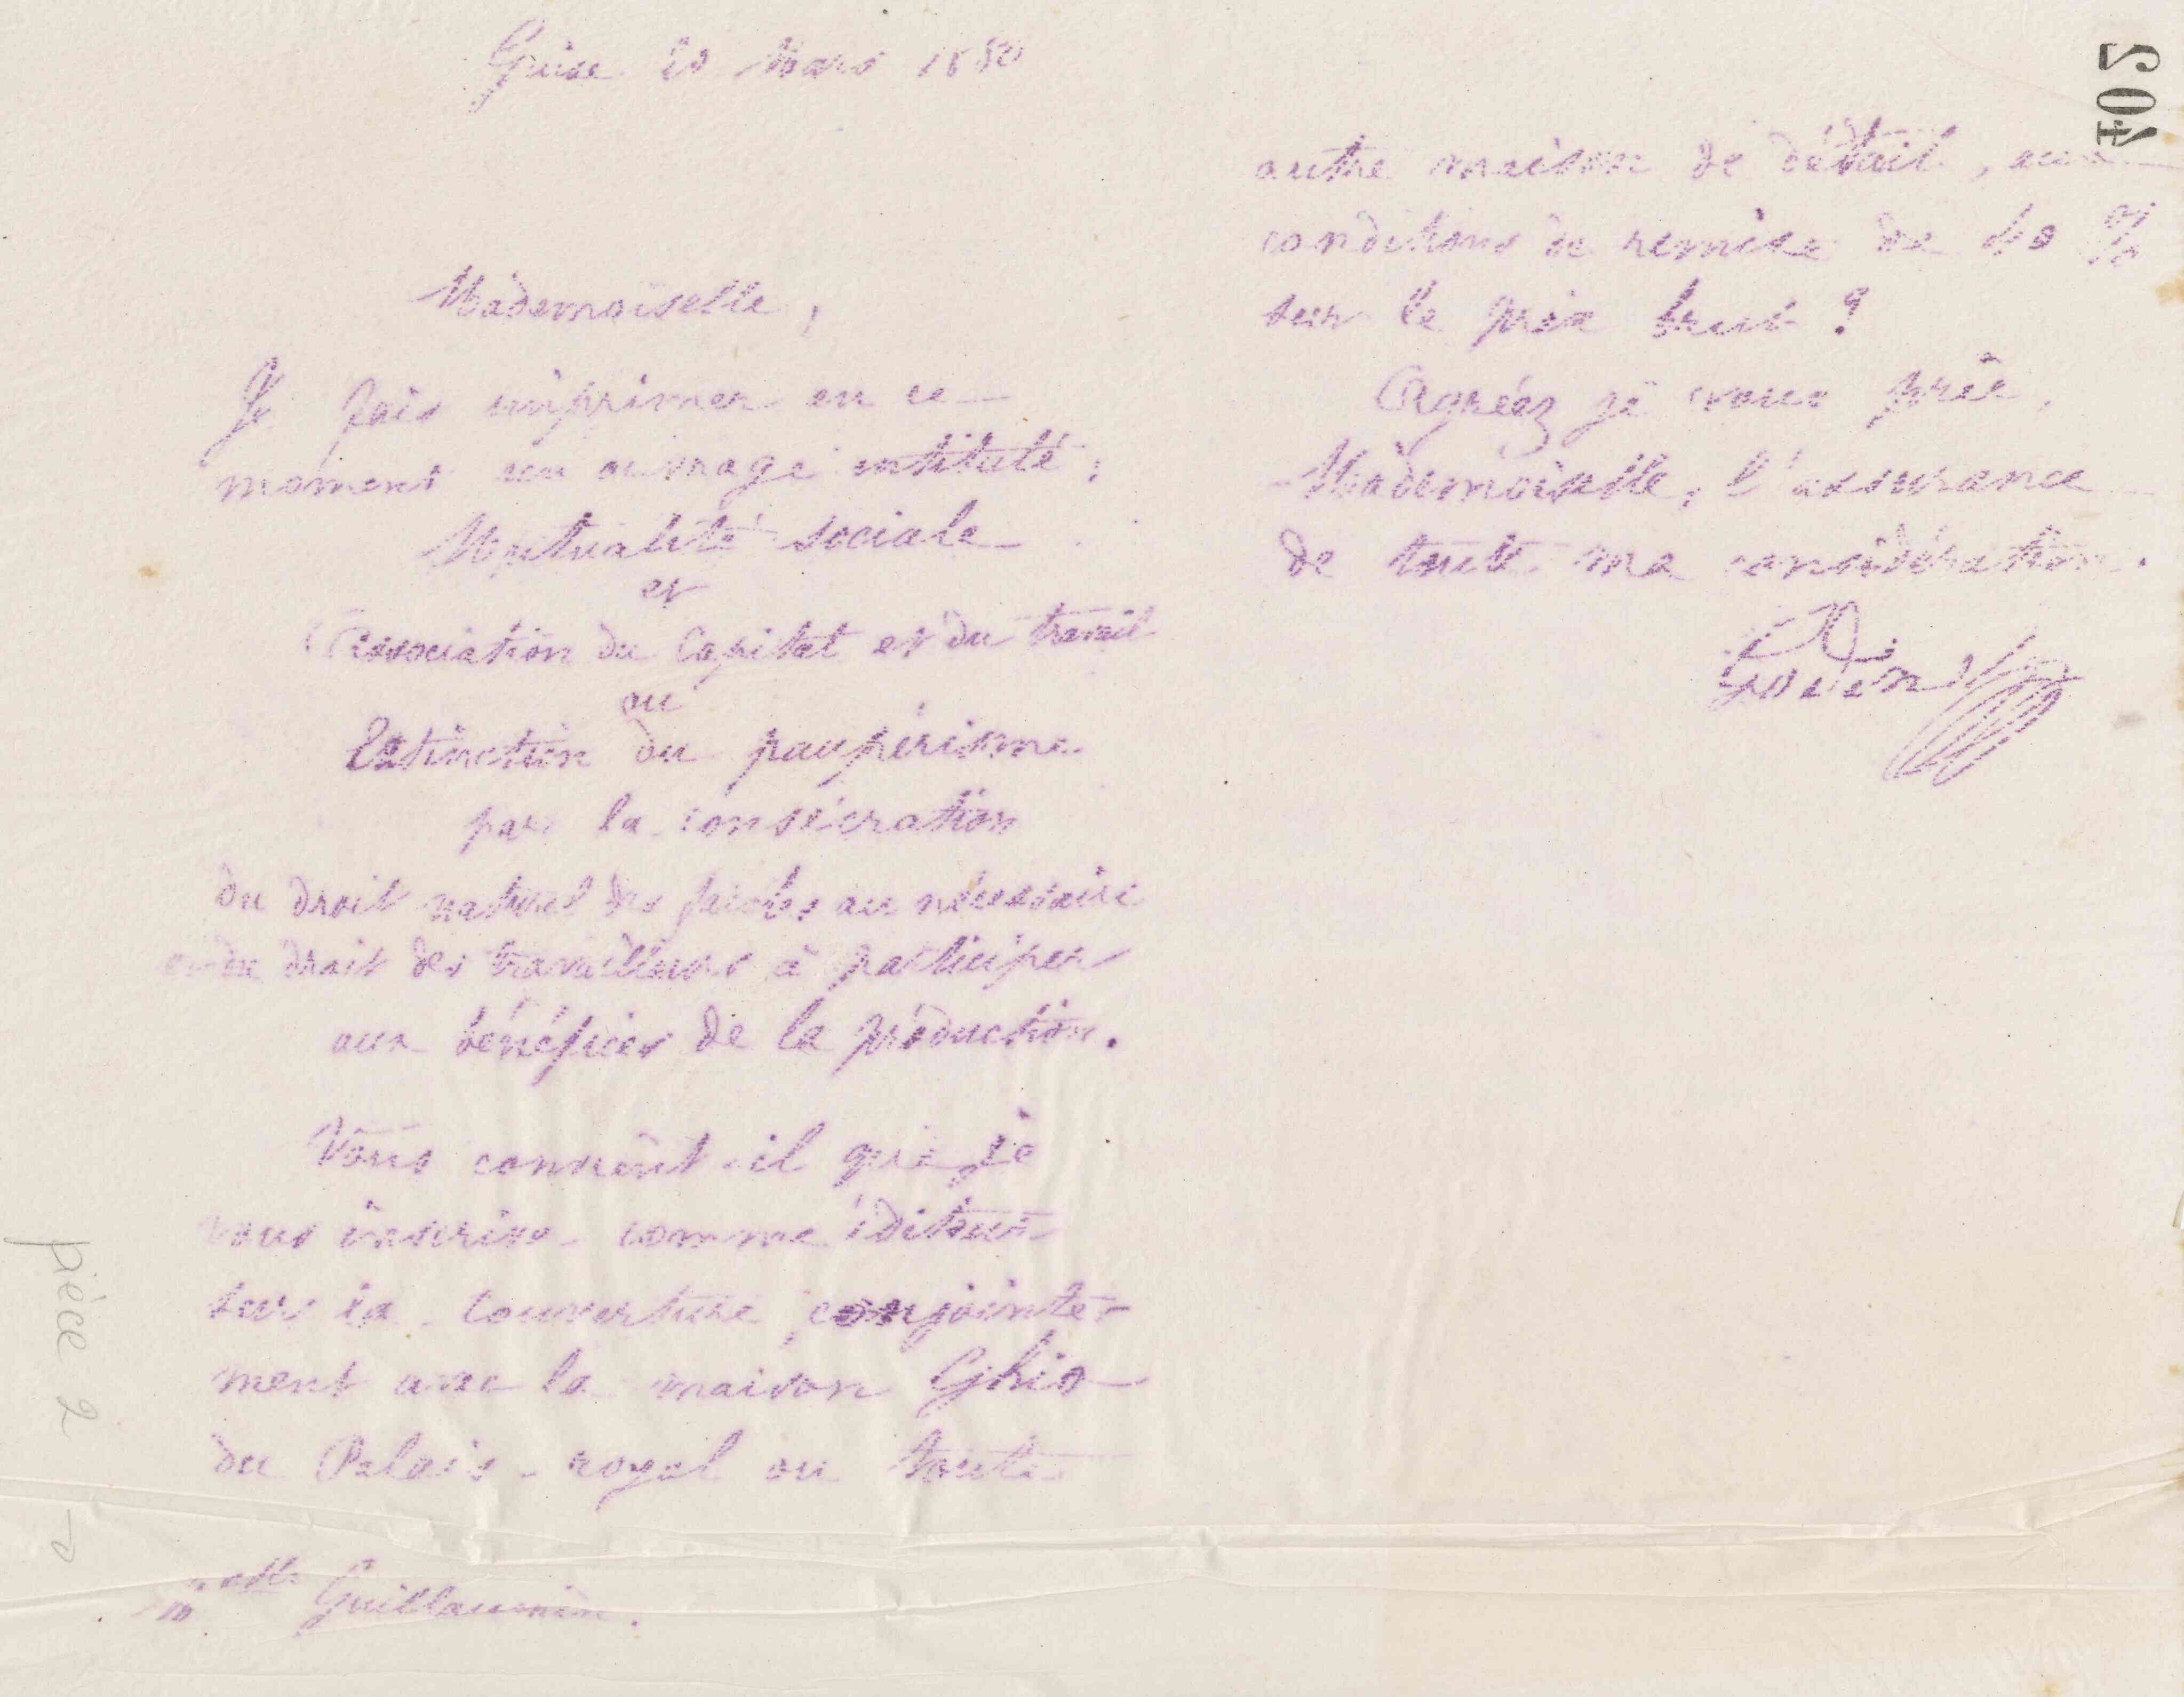 Guise 20 Mars 1880
Mademoiselle,
Je fais imprimer en ce
moment un ouvrage intitulé :
Mutualité sociale
et
Association du Capital et du travail
ou
Extinction du paupérisme
par la consécration
du droit naturel des faibles au nécessaire
et du droit des travailleurs à participer
aux bénéfices de la production.
Vous convient-il que je
vous inscrive comme éditeur
sur la couverture conjointe-
ment avec la maison Ghio
du Palais-royal ou toute
Melle Guillaumin.
pièce 2
502
autre maison de détail, aux
conditions de remise de 40 %
sur le prix brut ?
Agréez je vous prie,
Mademoiselle, l'assurance
de toute ma considération.
Godin